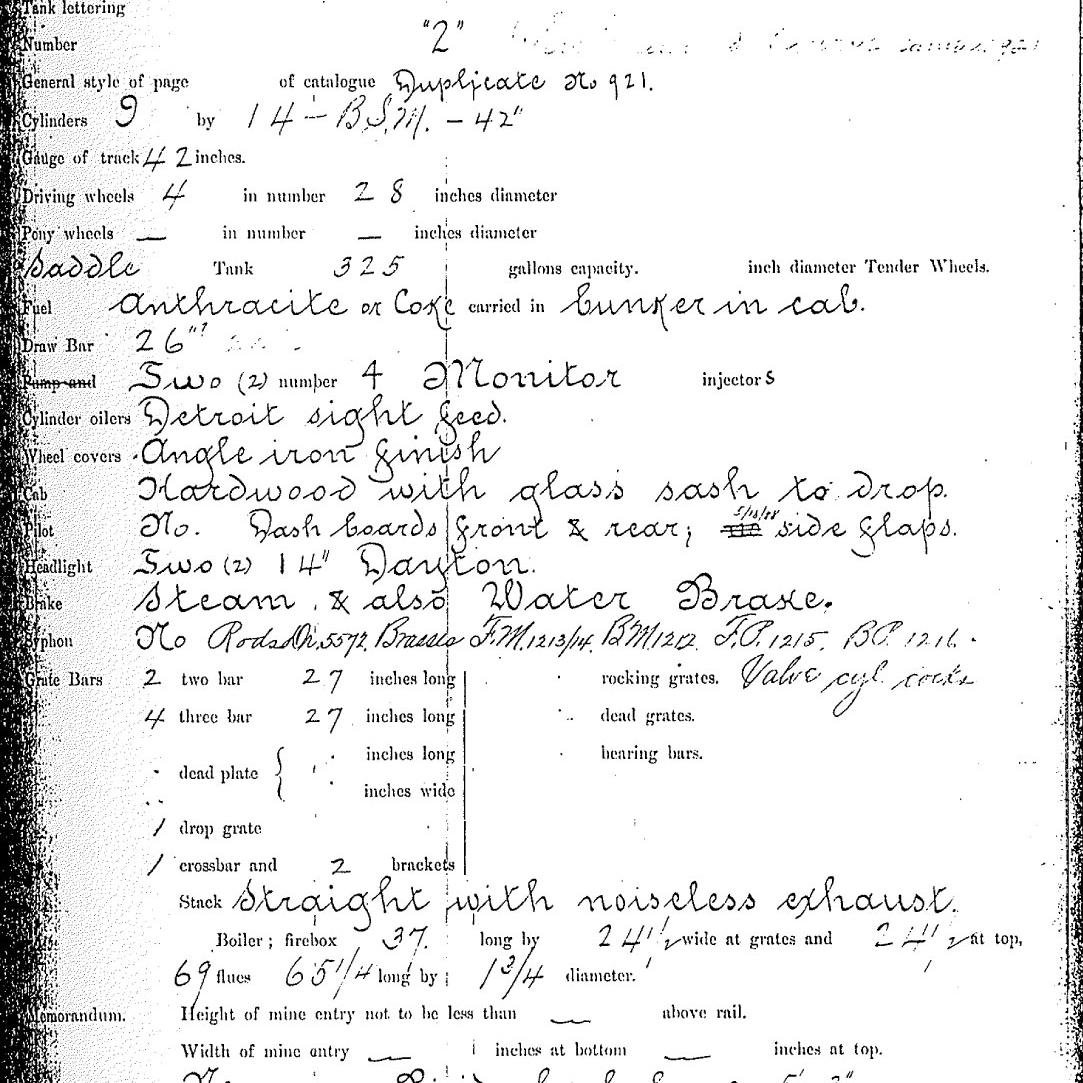 Tank lettering
Number "2"
General style of page of catalogue Duplicate No 921.
Cylinders 9 by 14 - B.S.M. - 42"
Gauge of track 42 inches.
Driving wheels 4 in number 28 inches diameter
Pony wheels — in number — inches diameter
Saddle Tank 325 gallons capacity. inch diameter Tender Wheels.
Fuel Anthracite or Coke carried in bunker in cab.
Draw Bar 26"?
Pump and Two (2) number 4 Monitor injectors
Cylinder oilers Detroit sight feed.
Wheel covers Angle iron finish
Cab Hardwood with glass sash to drop.
Pilot No. Dash boards front & rear; side flaps.
Headlight Two (2) 14" Dayton.
Brake Steam & also Water Brake.
Syphon No Rods 5572. Brasses F.M. 1213/14. B.M. 1212. F.P. 1215. B.P. 1216.
Grate Bars 2 two bar 27 inches long rocking grates. Valve cyl. cocks
4 three bar 27 inches long dead grates.
dead plate { inches long bearing bars.
inches wide
1 drop grate
1 crossbar and 2 brackets
Stack Straight with noiseless exhaust.
Boiler; firebox 37. long by 24 1/2 wide at grates and 24 1/2 at top,
69 flues 65 1/4 long by 1 3/4 diameter.
Memorandum. Height of mine entry not to be less than — above rail.
Width of mine entry — inches at bottom — inches at top.